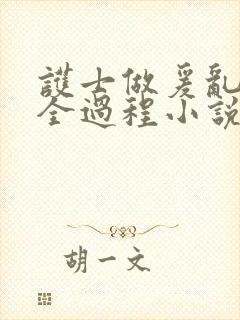 護士做爰亂
全過程小說
胡一文